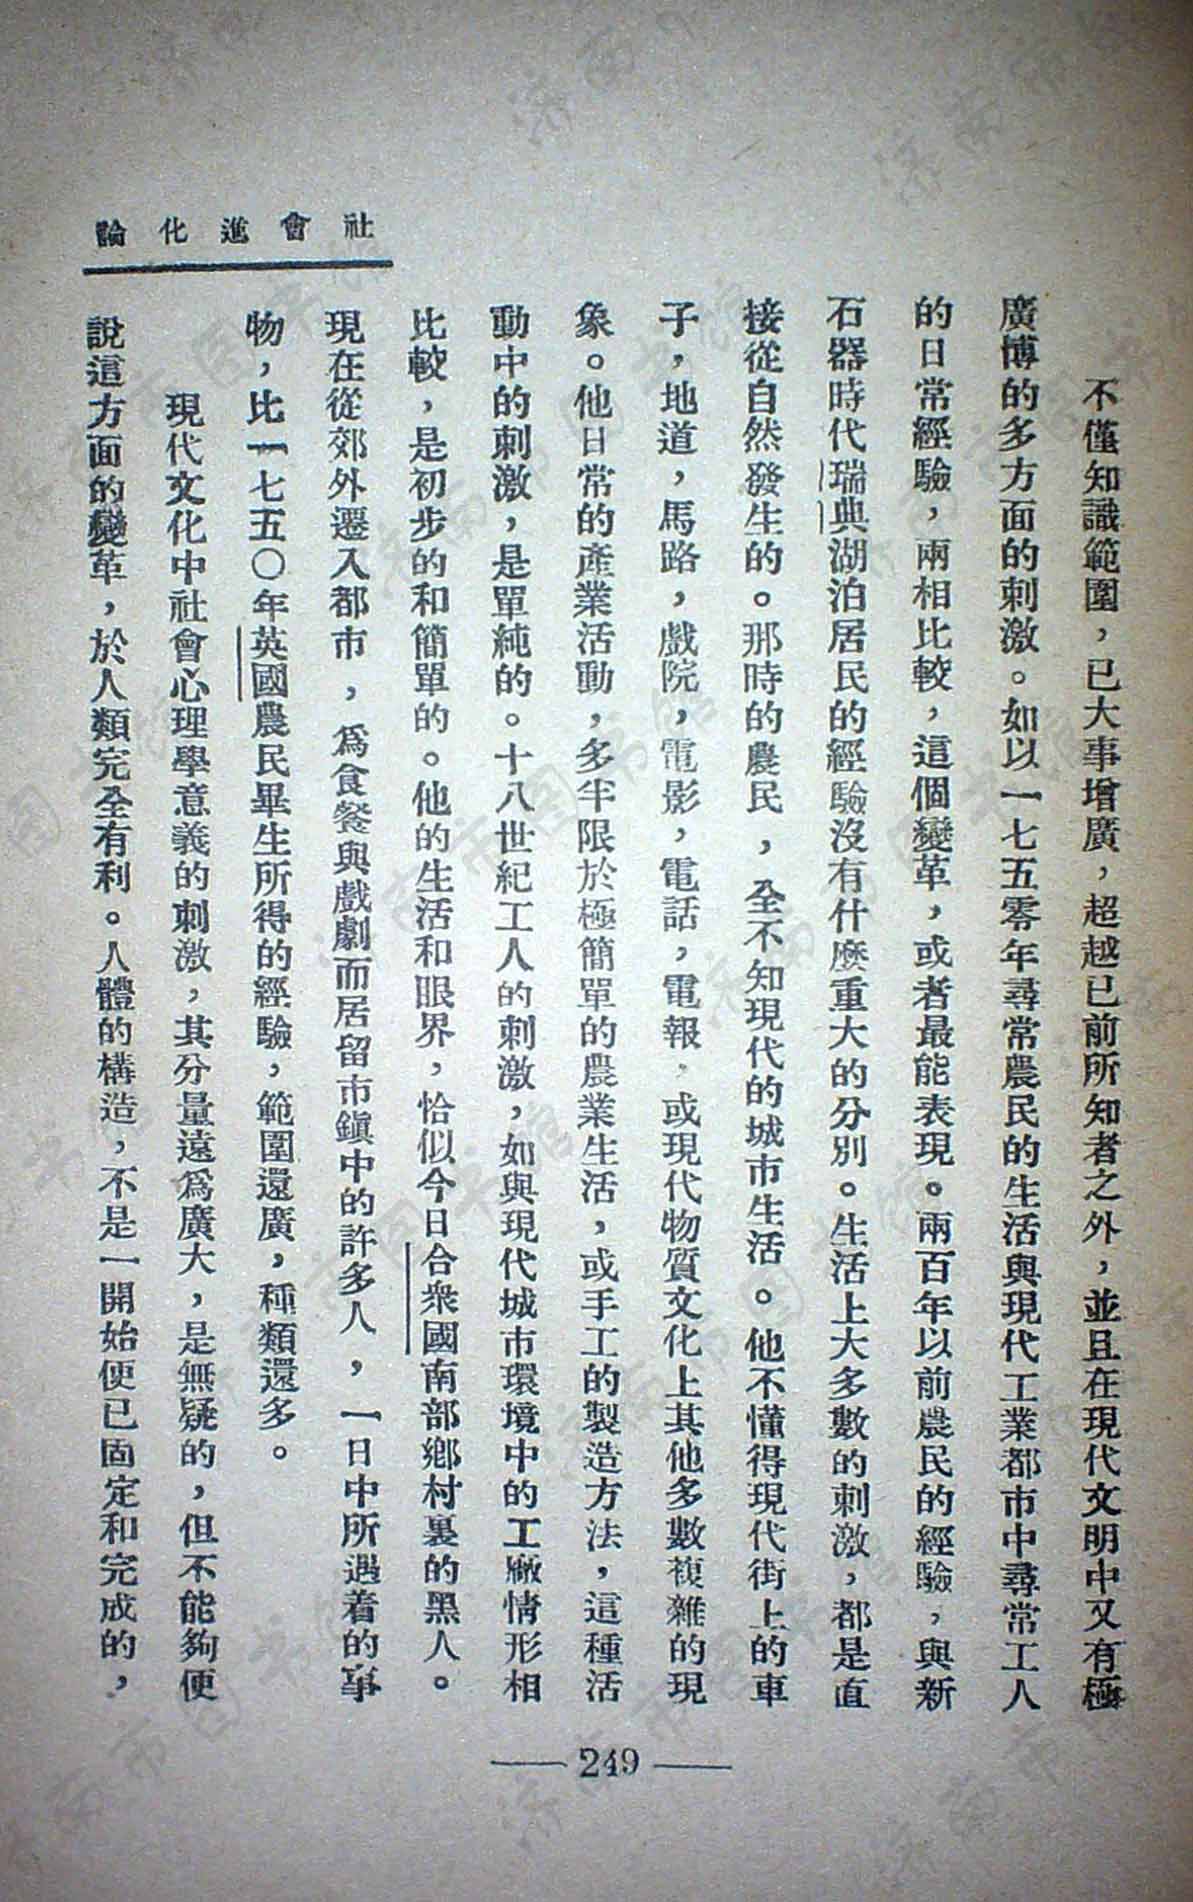 社會進化論
不僅知識範圍，已大事增廣，超越已前所知者之外，並且在現代文明中又有極
廣博的多方面的刺激。如以一七五零年尋常農民的生活與現代工業都市中尋常工人
的日常經驗，兩相比較，這個變革，或者最能表現。兩百年以前農民的經驗，與新
石器時代瑞典湖泊居民的經驗沒有什麼重大的分別。生活上大多數的刺激，都是直
接從自然發生的。那時的農民，全不知現代的城市生活。他不懂得現代街上的車
子，地道，馬路，戲院，電影，電話，電報，或現代物質文化上其他多數複雜的現
象。他日常的產業活動，多半限於極簡單的農業生活，或手工的製造方法，這種活
動中的刺激，是單純的。十八世紀工人的刺激，如與現代城市環境中的工廠情形相
比較，是初步的和簡單的。他的生活和眼界，恰似今日合衆國南部鄉村裏的黑人。
現在從郊外遷入都市，爲食餐與戲劇而居留市鎭中的許多人，一日中所遇着的事
物，比一七五〇年英國農民畢生所得的經驗，範圍還廣，種類還多。
現代文化中社會心理學意義的刺激，其分量遠爲廣大，是無疑的，但不能夠便
說這方面的變革，於人類完全有利。人體的構造，不是一開始便已固定和完成的，
—249—
济南市图书馆